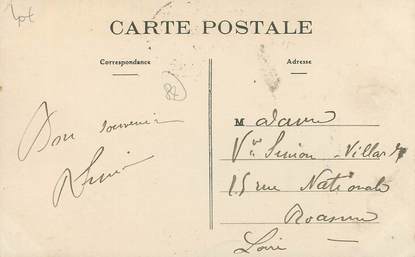 Lot
CARTE POSTALE
Correspondance
Adresse
82
Bon souvenir
Madame
Vve Simon-Villard
15 rue Nationale
Roanne
Loire